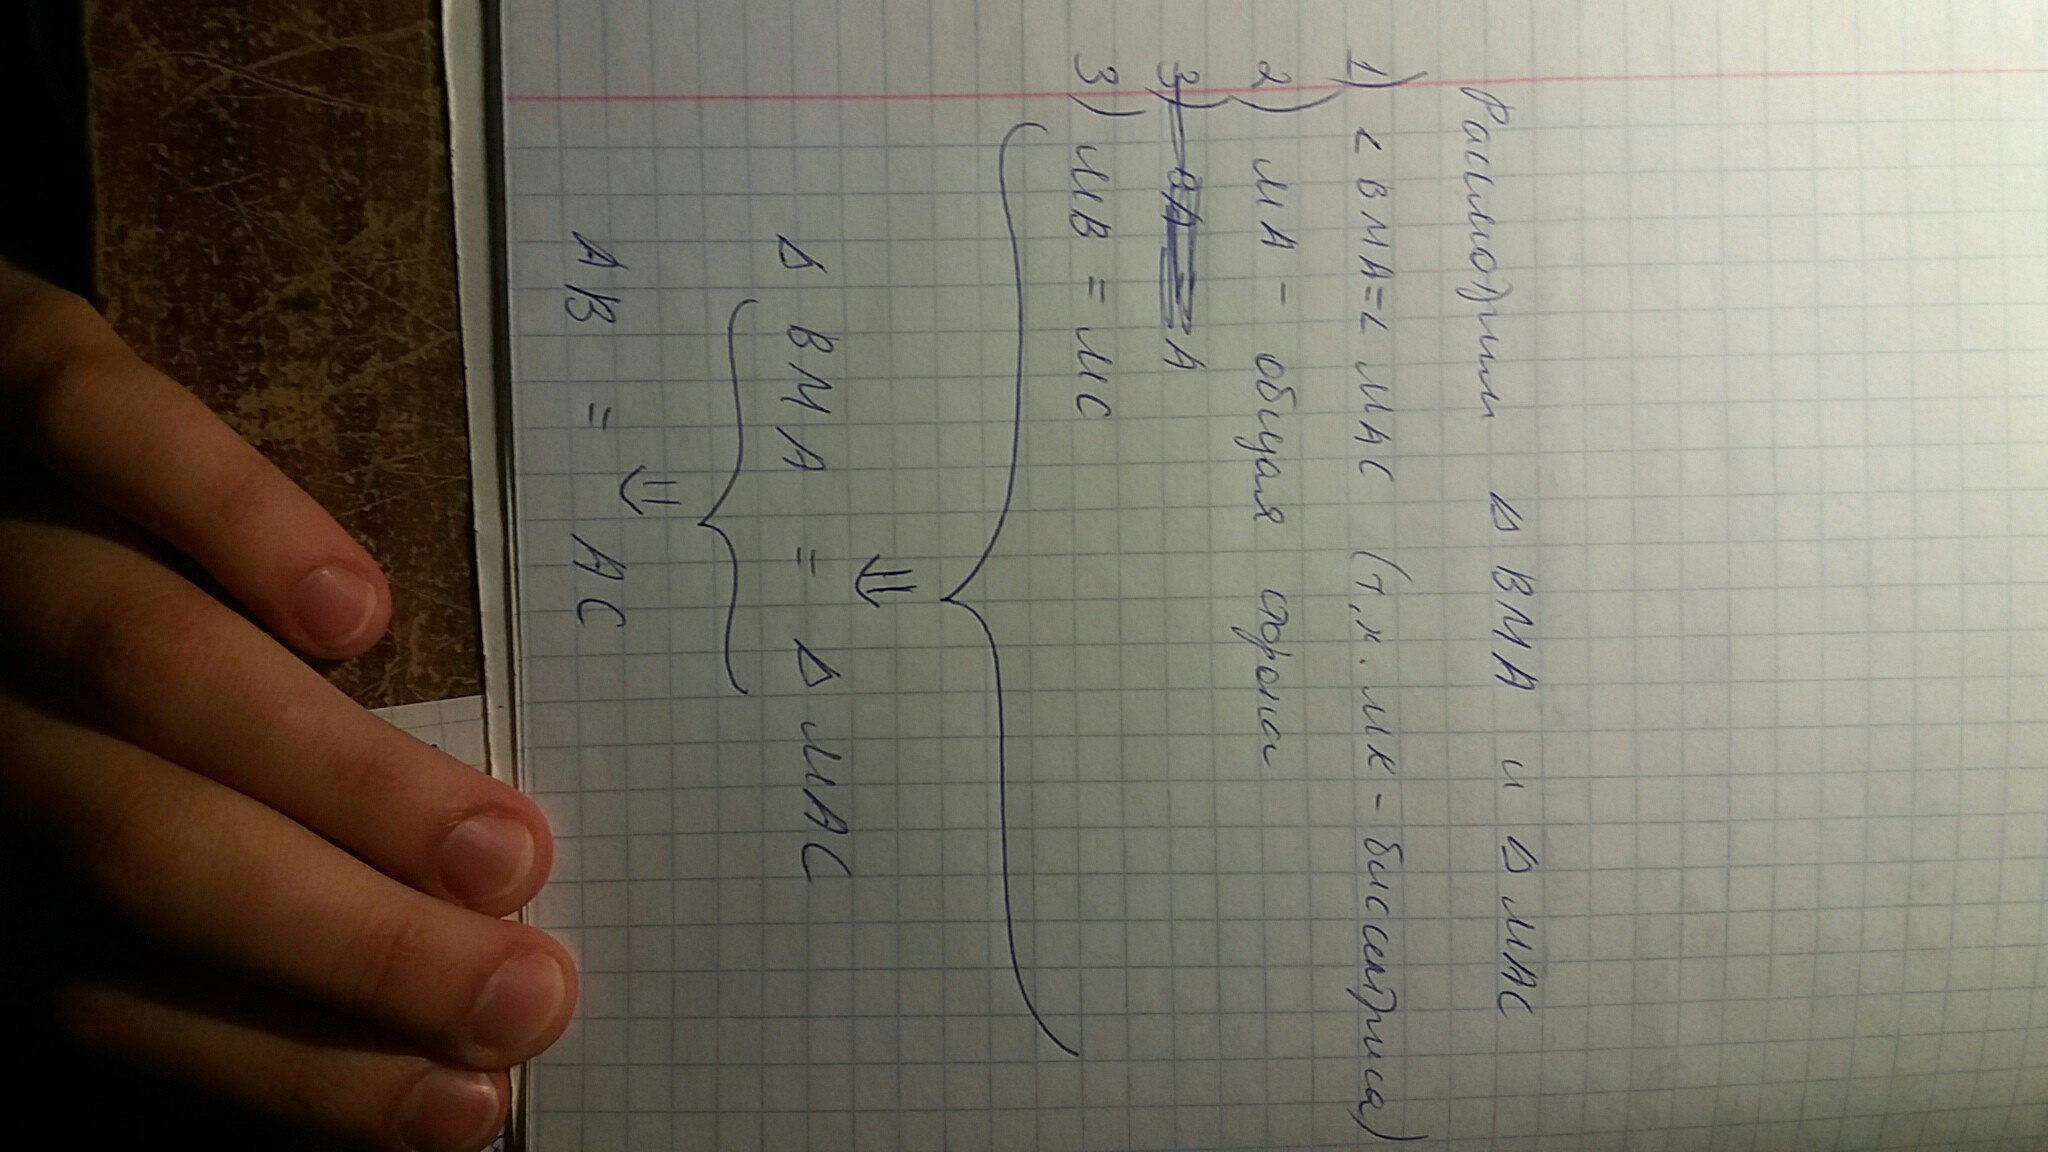 Рассмотрим △ BMA и △ MAC
1) ∠ BMA = ∠ MAC (т.к. МК - биссектриса)
2) MA - общая сторона
3) MB = MC
⇓
△ BMA = △ MAC
⇓
AB = AC